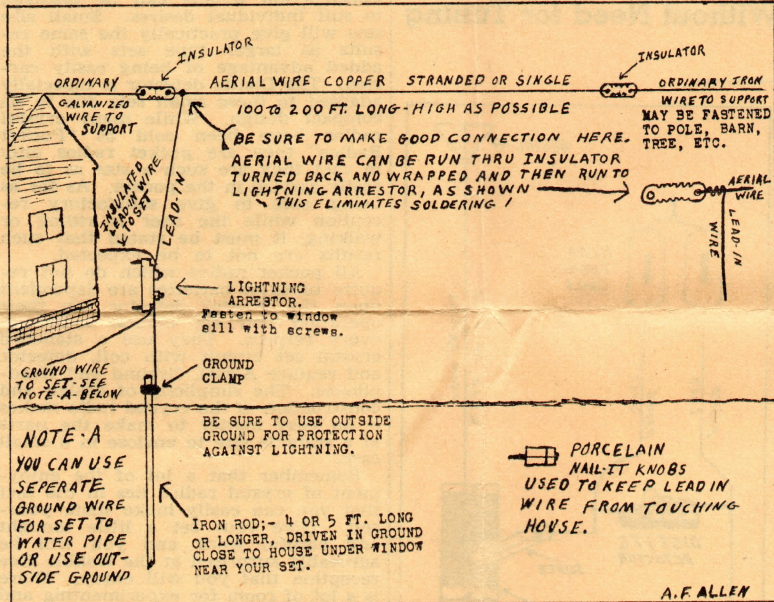 INSULATOR
INSULATOR
ORDINARY
AERIAL WIRE COPPER STRANDED OR SINGLE
ORDINARY IRON
GALVANIZED
WIRE TO
SUPPORT
100 TO 200 FT. LONG - HIGH AS POSSIBLE
WIRE TO SUPPORT
MAY BE FASTENED
TO POLE, BARN,
TREE, ETC.
BE SURE TO MAKE GOOD CONNECTION HERE.
AERIAL WIRE CAN BE RUN THRU INSULATOR
TURNED BACK AND WRAPPED AND THEN RUN TO
LIGHTNING ARRESTOR, AS SHOWN
THIS ELIMINATES SOLDERING!
AERIAL
WIRE
LEAD-IN
WIRE
INSULATED
LEAD-IN WIRE
TO SET
LEAD-IN
LIGHTNING
ARRESTOR.
Fasten to window
sill with screws.
GROUND WIRE
TO SET-SEE
NOTE-A-BELOW
GROUND
CLAMP
BE SURE TO USE OUTSIDE
GROUND FOR PROTECTION
AGAINST LIGHTNING.
NOTE-A
YOU CAN USE
SEPERATE
GROUND WIRE
FOR SET TO
WATER PIPE
OR USE OUT-
SIDE GROUND
IRON ROD;- 4 OR 5 FT. LONG
OR LONGER, DRIVEN IN GROUND
CLOSE TO HOUSE UNDER WINDOW
NEAR YOUR SET.
PORCELAIN
NAIL-IT KNOBS
USED TO KEEP LEAD IN
WIRE FROM TOUCHING
HOUSE.
A.F. ALLEN